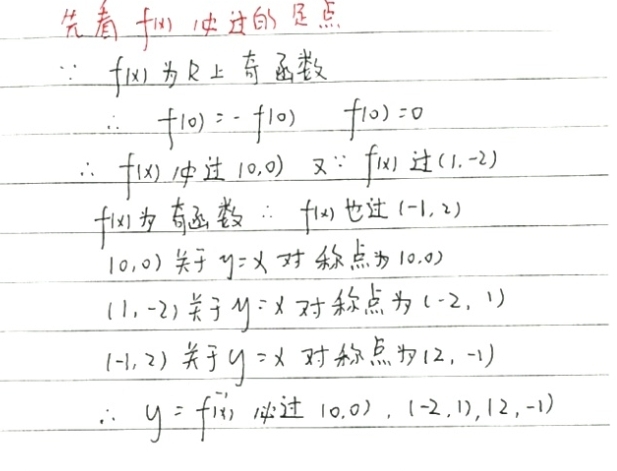 先看 f(x) 必过的定点
∵ f(x) 为 R 上奇函数
∴ f(0) = - f(0) f(0) = 0
∴ f(x) 必过 (0,0) 又∵ f(x) 过 (1,-2)
f(x) 为奇函数 ∴ f(x) 也过 (-1,2)
(0,0) 关于 y=x 对称点为 (0,0)
(1,-2) 关于 y=x 对称点为 (-2, 1)
(-1,2) 关于 y=x 对称点为 (2, -1)
∴ y = f⁻¹(x) 必过 (0,0), (-2,1), (2,-1)